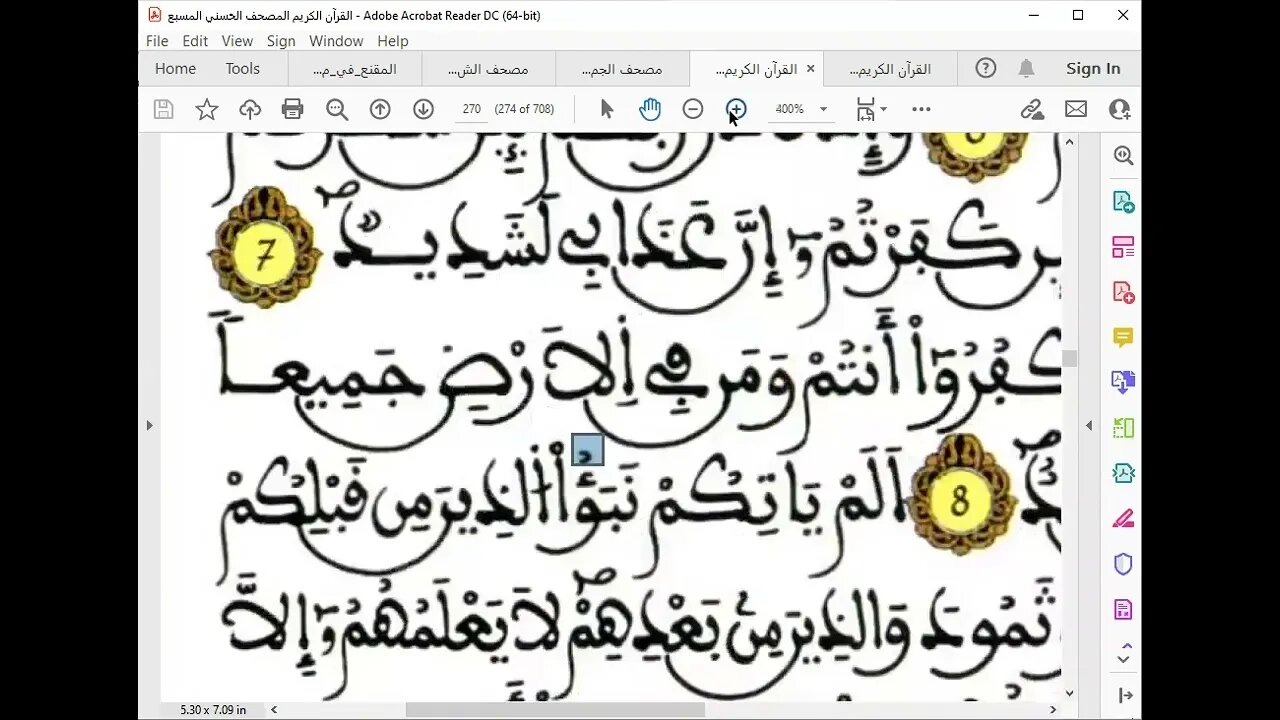 القرآن الكريم المصحف الحسني المسبع - Adobe Acrobat Reader DC (64-bit)
File Edit View Sign Window Help
Home Tools المقنع_في_م... مصحف الش... مصحف الجم... القرآن الكريم... القرآن الكريم... Sign In
270 (274 of 708) 400%
كَفَرْتُمُۥٓ إِنَّ عَذَابِے لَشَدِيدٞ 7
كْفُرُوٓاْ أَنتُمْ وَمَن فِے اِ۬لَارْضِ جَمِيعاٗ
8 اَلَمْ يَاتِكُمْ نَبَؤُاْ اُ۬لذِينَ مِن قَبْلِكُمْ
ثَمُودَ وَالذِينَ مِنۢ بَعْدِهِمْ لَا يَعْلَمُهُمُۥٓ إِلَّا
5.30 x 7.09 in